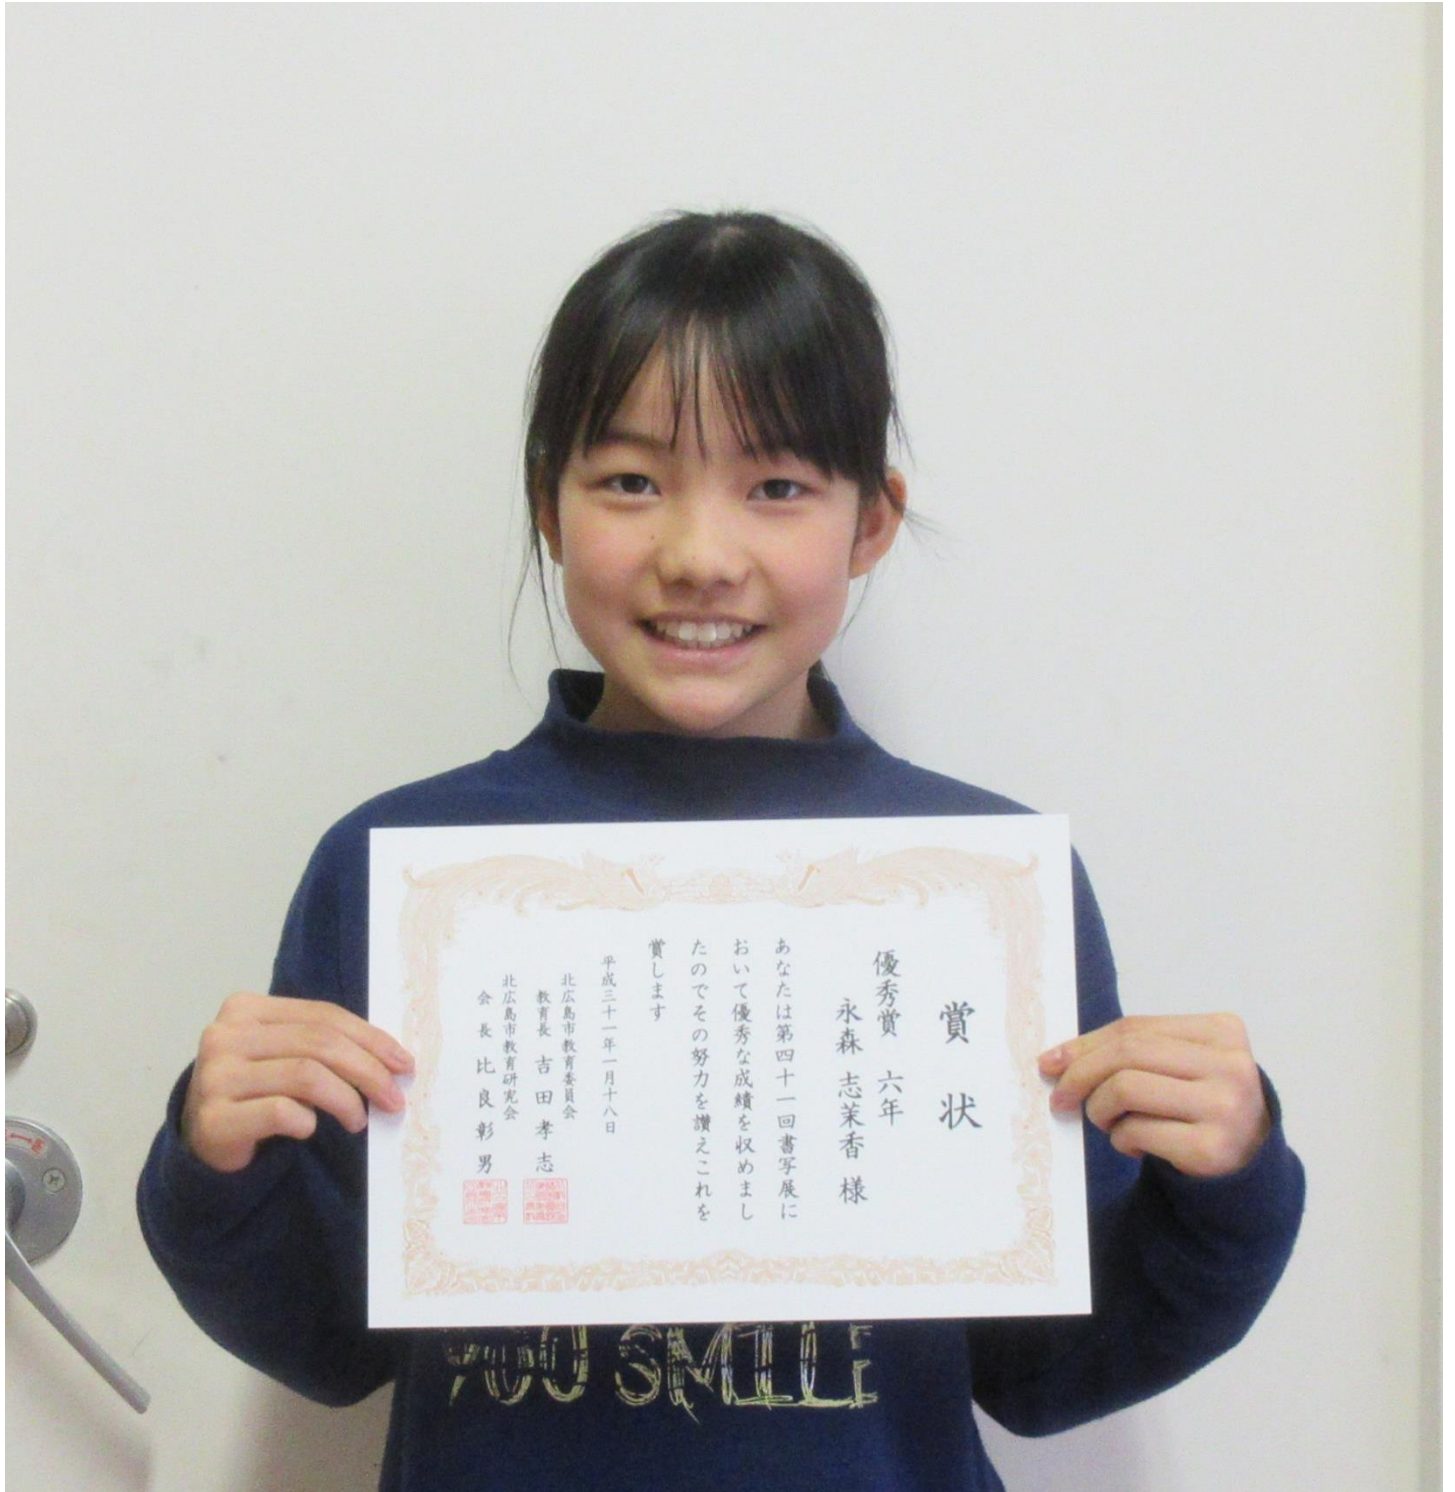 賞状
優秀賞 六年
永森 志茉香 様
あなたは第四十一回書写展に
おいて優秀な成績を収めまし
たのでその努力を讃えこれを
賞します
平成三十一年一月十八日
北広島市教育委員会
教育長 吉田孝志
北広島市教育研究会
会長 比良彰男
YOU SMILE